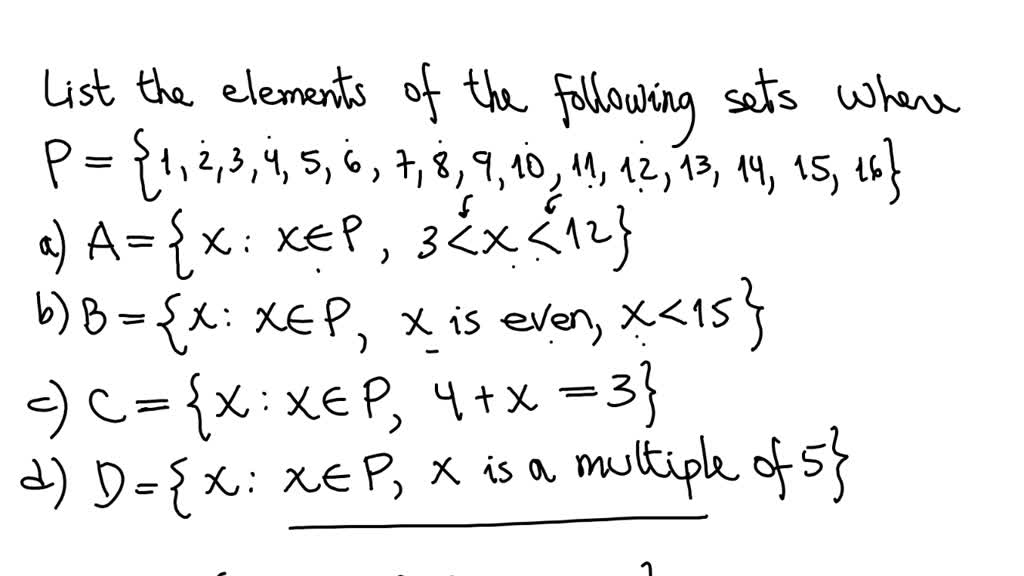 List the elements of the following sets where
P = {1, 2, 3, 4, 5, 6, 7, 8, 9, 10, 11, 12, 13, 14, 15, 16}
a) A = {x : x ∈ P, 3 < x < 12}
b) B = {x : x ∈ P, x is even, x < 15}
c) C = {x : x ∈ P, 4 + x = 3}
d) D = {x : x ∈ P, x is a multiple of 5}